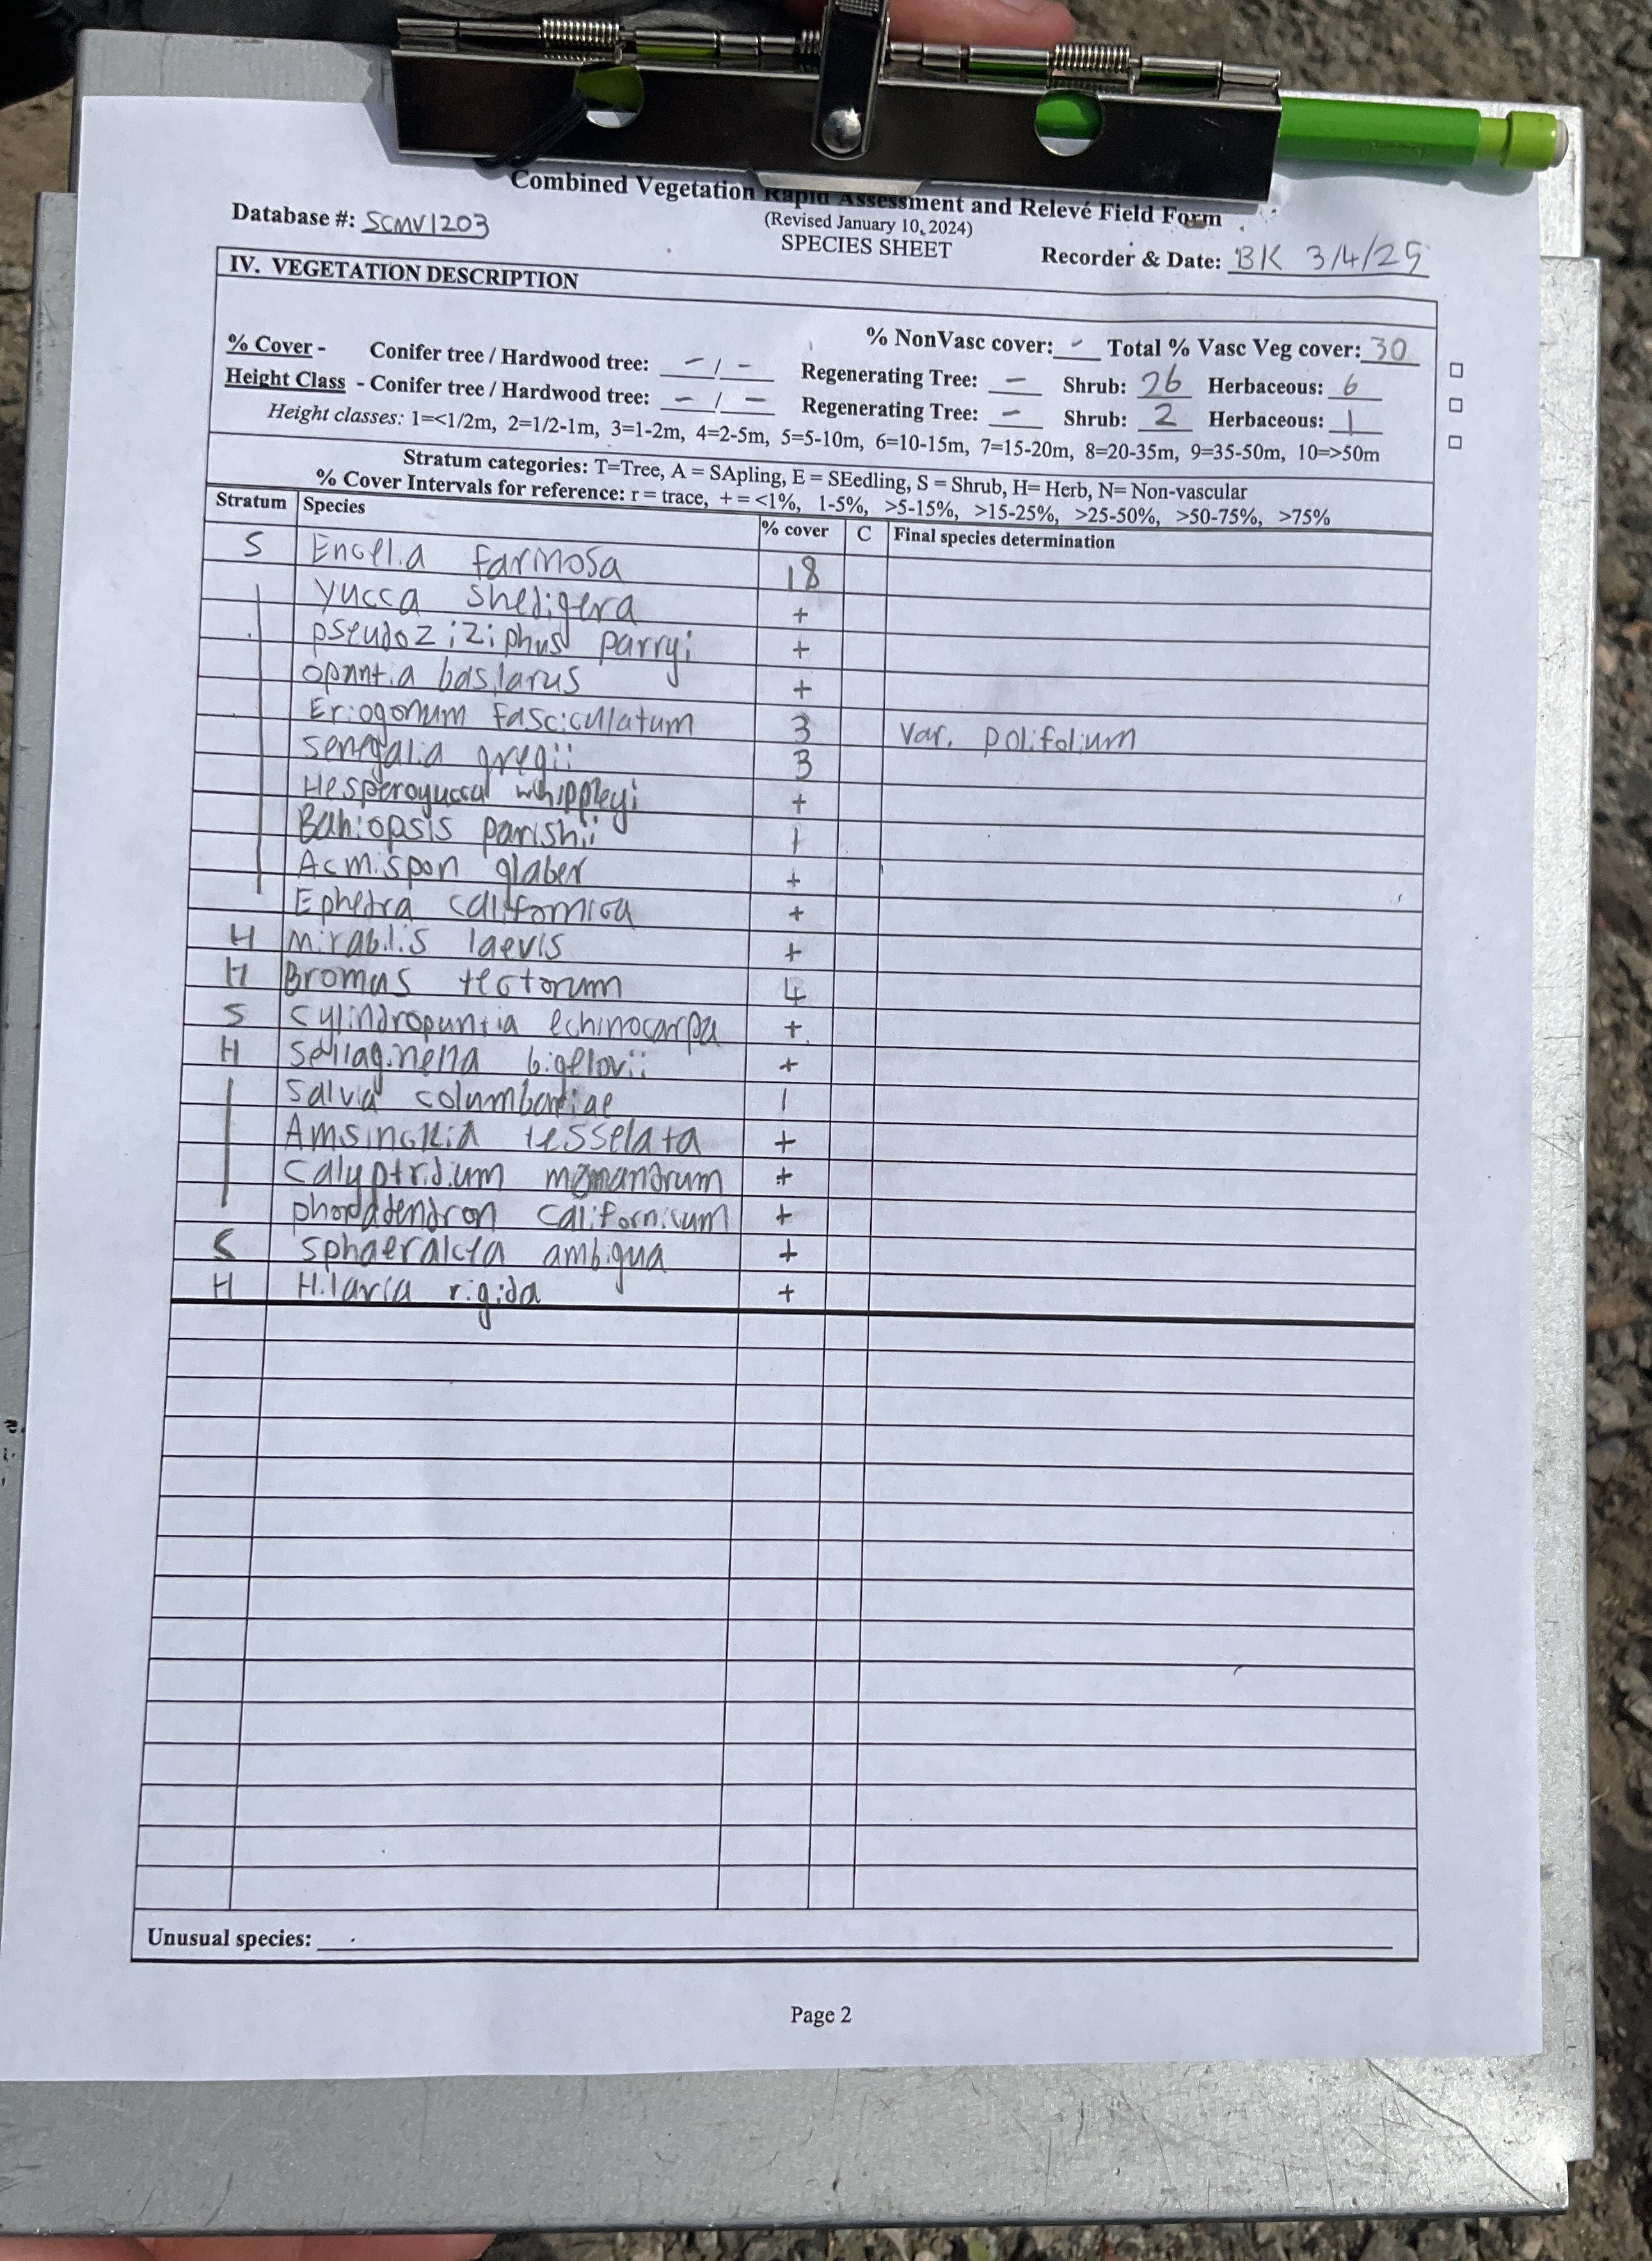 Combined Vegetation Rapid Assessment and Relevé Field Form
(Revised January 10, 2024)
Database #: SCMV1203
SPECIES SHEET
Recorder & Date: BK 3/4/25
IV. VEGETATION DESCRIPTION
% NonVasc cover: - Total % Vasc Veg cover: 30
% Cover - Conifer tree / Hardwood tree: - / - Regenerating Tree: - Shrub: 26 Herbaceous: 6
Height Class - Conifer tree / Hardwood tree: - / - Regenerating Tree: - Shrub: 2 Herbaceous: 1
Height classes: 1=<1/2m, 2=1/2-1m, 3=1-2m, 4=2-5m, 5=5-10m, 6=10-15m, 7=15-20m, 8=20-35m, 9=35-50m, 10=>50m
Stratum categories: T=Tree, A = SApling, E = SEedling, S = Shrub, H= Herb, N= Non-vascular
% Cover Intervals for reference: r = trace, + = <1%, 1-5%, >5-15%, >15-25%, >25-50%, >50-75%, >75%
Stratum Species % cover C Final species determination
S Encelia farmosa 18
Yucca shedigera +
pseudoziziphus parryi +
opuntia basilarus +
Eriogonum fasciculatum 3 var. polifolium
senegalia gregii 3
Hesperoyucca whippleyi +
Bahiopsis parishii +
Acmispon glaber +
Ephedra californica +
H mirabilis laevis +
H Bromus tectorum 4
S cylindropuntia echinocarpa +
H sellaginella bigelovii +
salvia columbariae 1
Amsinckia tesselata +
calyptridium monandrum +
phoradendron californicum +
S sphaeralcea ambigua +
H Hilaria rigida +
Unusual species:
Page 2